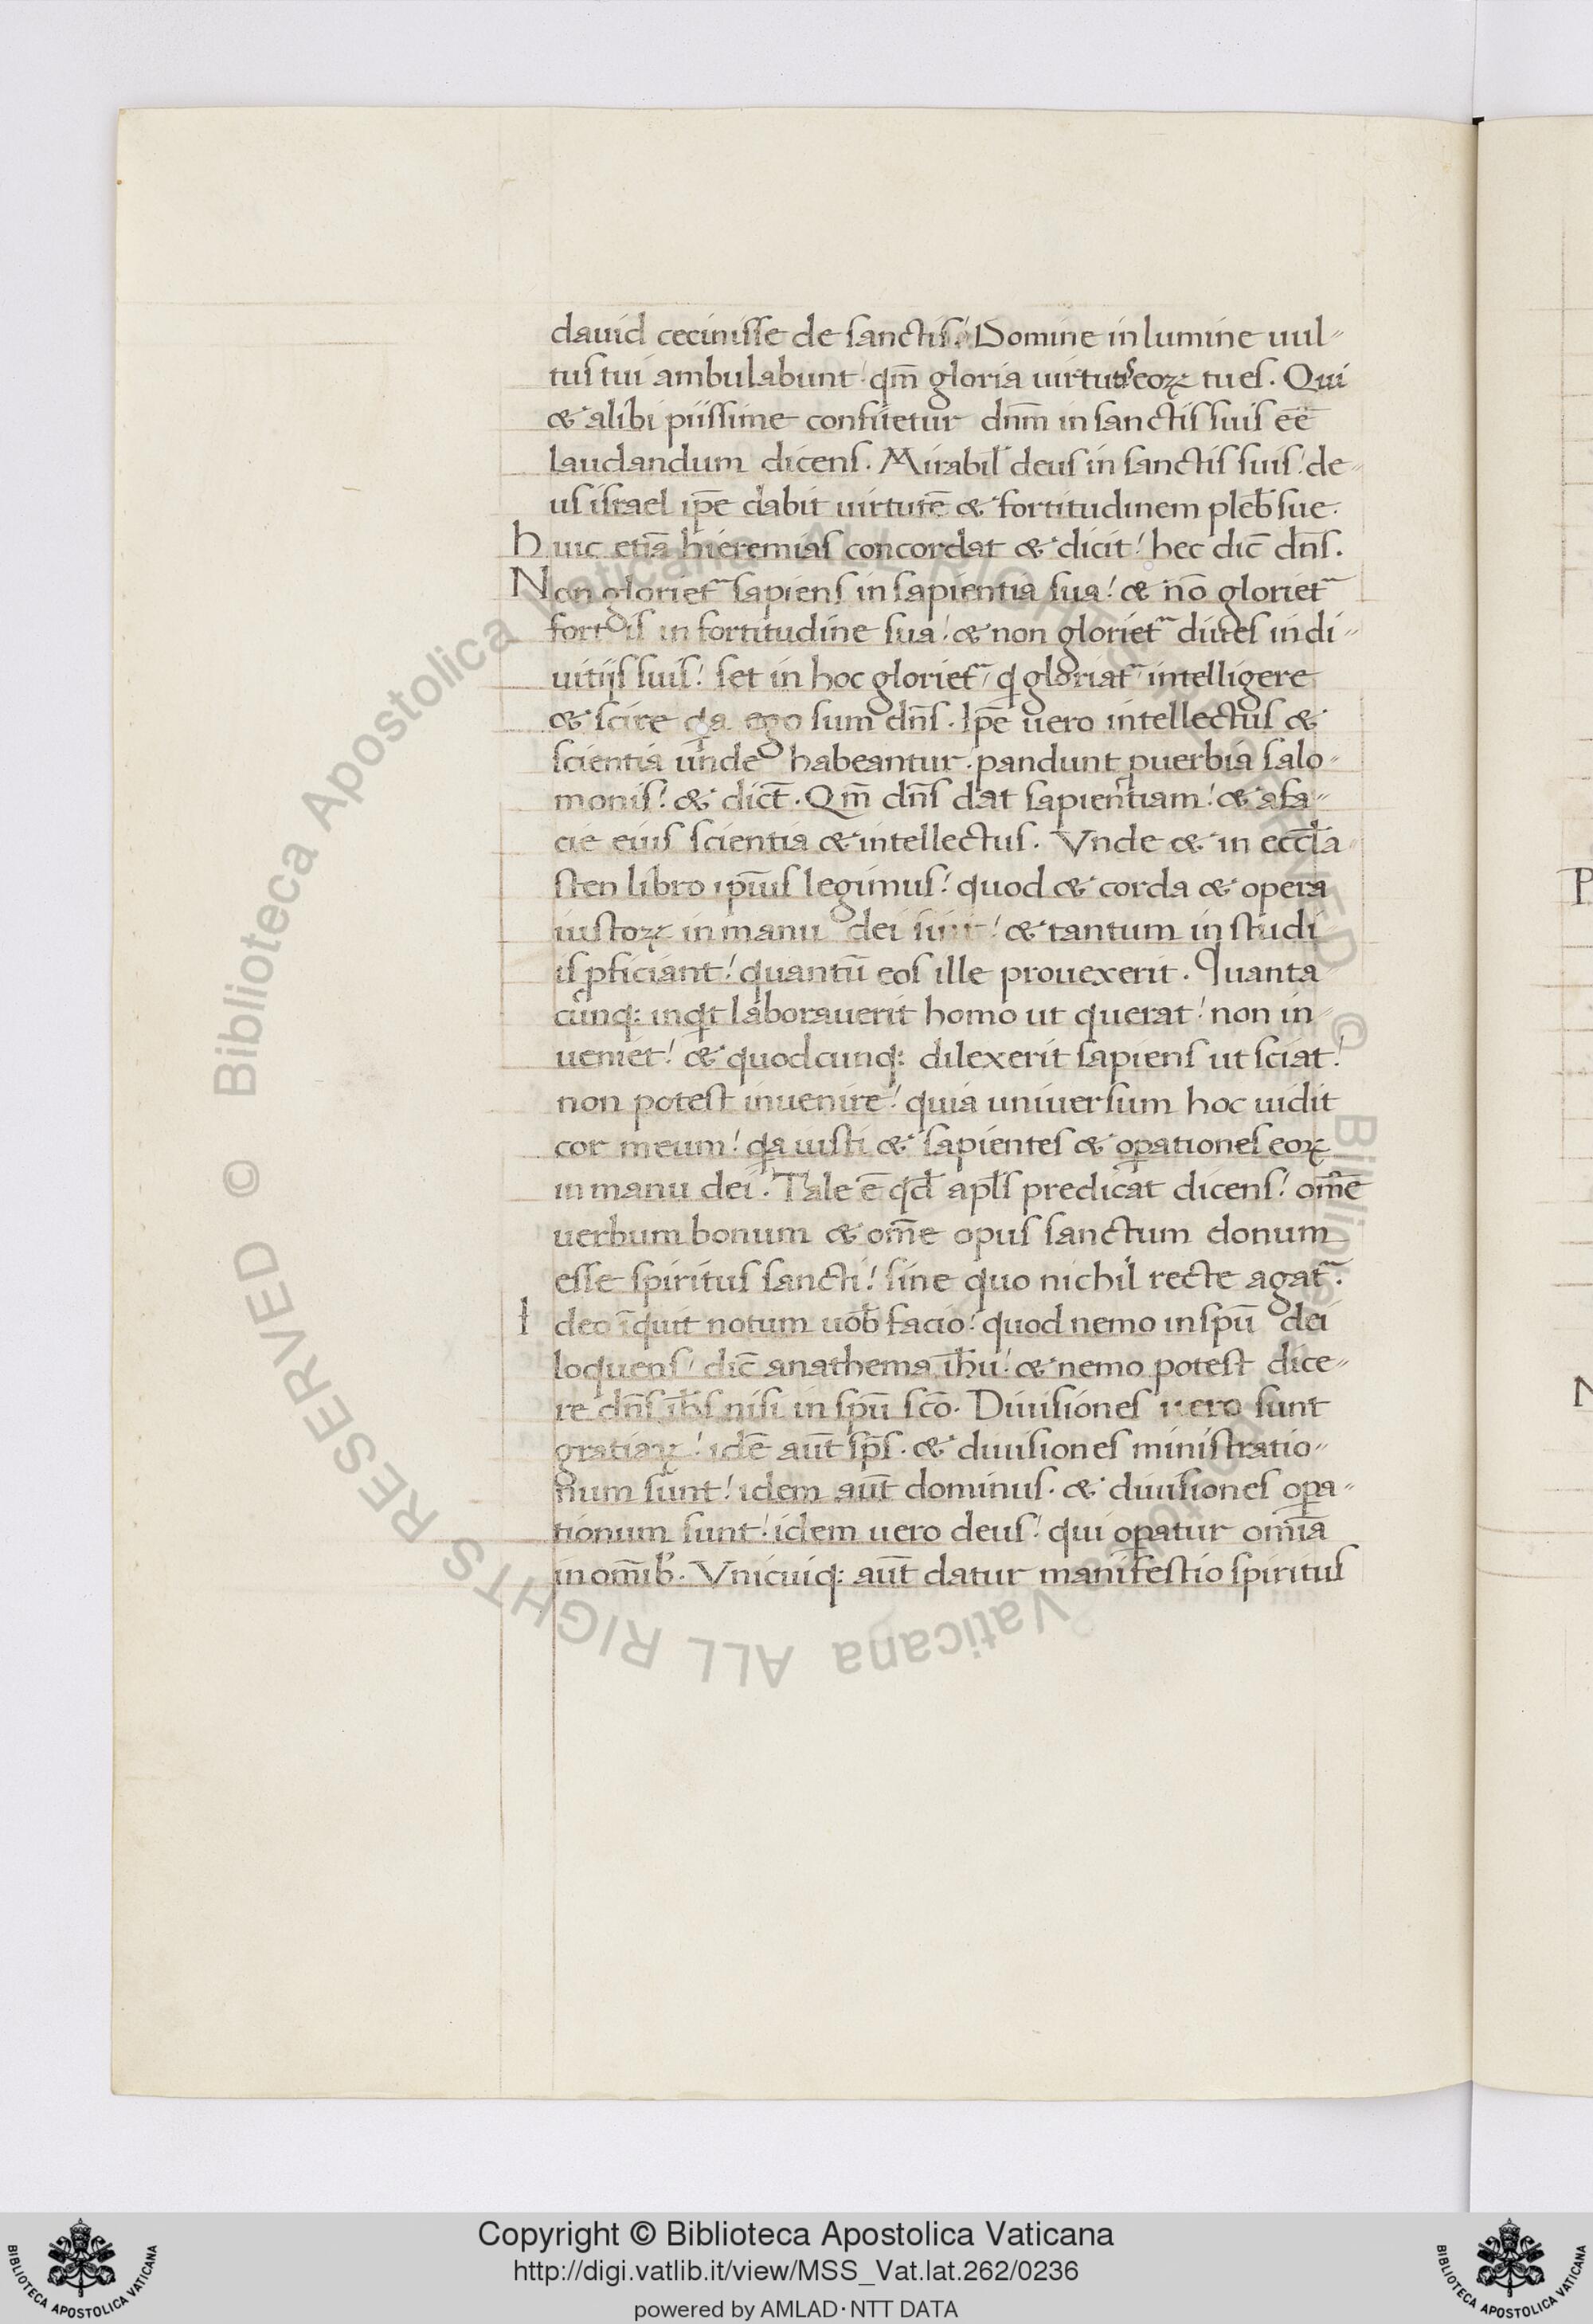 dauid cecinisse de sanctis! Domine in lumine uul-
tus tui ambulabunt qm̅ gloria uirtutis eoꝝ tu es. Qui
& alibi piissime confitetur dn̅m in sanctis suis ee̅
laudandum dicens. Mirabil̅ deus in sanctis suis! de-
us israel ip̅e dabit uirtute̅ & fortitudinem pleb̅ sue.
Huic etia̅ hieremias concordat & dicit! hec dic̅ dn̅s.
Non gloriet᷑ sapiens in sapientia sua! & no̅ gloriet᷑
fortis in fortitudine sua! & non gloriet᷑ diues in di-
uitiis suis! set in hoc gloriet᷑, q̇ gloriat᷑ intelligere
& scire qa ego sum dn̅s. Ip̅e uero intellectus &
scientia unde habeantur. pandunt ꝓuerbia salo-
monis! & dict̅. Qm̅ dn̅s dat sapientiam! & a fa-
cie eius scientia & intellectus. Vnde & in eccl̅a
sten libro ip̅ius legimus! quod & corda & opera
iustoꝝ in manu dei sint! & tantum in studi
is ꝓficiant! quantu̅ eos ille prouexerit. Quanta
cu̅nq: inqt laborauerit homo ut querat! non in-
ueniet! & quodcunq: dilexerit sapiens ut sciat!
non potest inuenire! quia uniuersum hoc uidit
cor meum! qa iusti & sapientes & oꝑationes eoꝝ
in manu dei. Tale e̅ qd̅ apl̅s predicat dicens! om̅e
uerbum bonum & om̅e opus sanctum donum
esse spiritus sancti! sine quo nichil recte agat᷑.
Ideo i̅quit notum uob̅ facio! quod nemo in spu̅ dei
loquens, dic̅ anathema ih̅u! & nemo potest dice-
re dn̅s ih̅s nisi in spu̅ sc̅o. Diuisiones uero sunt
gratiaꝝ! ide̅ aut̅ sp̅s. & diuisiones ministratio-
num sunt! idem aut̅ dominus. & diuisiones oꝑa-
tionum sunt! idem uero deus! qui oꝑatur om̅ia
in om̅ib᷒. Vnicuiq: aut̅ datur manifestio spiritus
© Biblioteca Apostolica Vaticana ALL RIGHTS RESERVED © Biblioteca Apostolica Vaticana ALL RIGHTS RESERVED
Copyright © Biblioteca Apostolica Vaticana
http://digi.vatlib.it/view/MSS_Vat.lat.262/0236
powered by AMLAD·NTT DATA
BIBLIOTECA APOSTOLICA VATICANA
BIBLIOTECA APOSTOLICA VATICANA